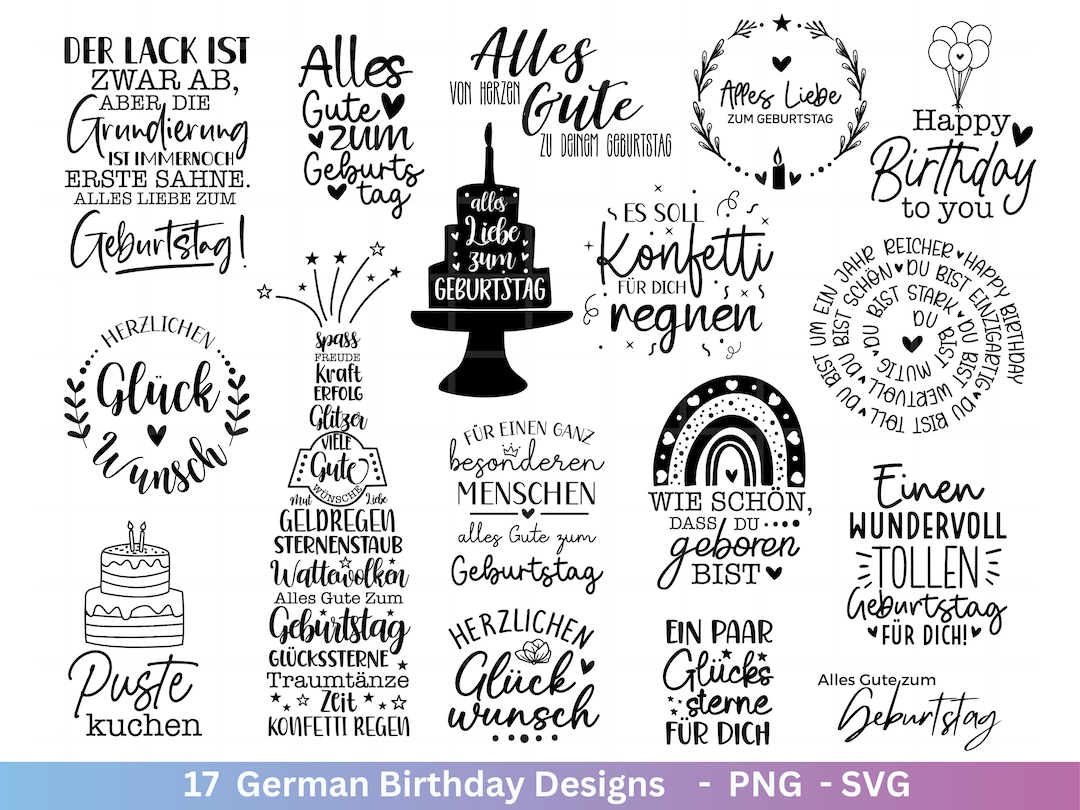 DER LACK IST
ZWAR AB,
ABER DIE
Grundierung
IST IMMERNOCH
ERSTE SAHNE.
ALLES LIEBE ZUM
Geburtstag!
Alles
Gute
zum
Geburts
tag
Alles
VON HERZEN
Gute
ZU DEINEM GEBURTSTAG
Alles Liebe
ZUM GEBURTSTAG
Happy
Birthday
to you
alles
Liebe
zum
GEBURTSTAG
ES SOLL
Konfetti
FÜR DICH
regnen
DU BIST UM EIN JAHR REICHER HAPPY BIRTHDAY
DU BIST TOLL DU BIST SCHÖN DU BIST EINZIGARTIG
DU BIST WERTVOLL DU BIST STARK
DU BIST MUTIG
HERZLICHEN
Glück
Wunsch
spass
FREUDE
Kraft
ERFOLG
Glitzer
VIELE
Gute
WÜNSCHE
Mut Liebe
GELDREGEN
STERNENSTAUB
Wattewolken
Alles Gute Zum
Geburtstag
GLÜCKSSTERNE
Traumtänze
Zeit
KONFETTI REGEN
FÜR EINEN GANZ
besonderen
MENSCHEN
alles Gute zum
Geburtstag
WIE SCHÖN,
DASS DU
geboren
BIST
Einen
WUNDERVOLL
TOLLEN
Geburtstag
FÜR DICH!
Puste
kuchen
HERZLICHEN
Glück
wunsch
EIN PAAR
Glücks
sterne
FÜR DICH
Alles Gute zum
Geburtstag
17 German Birthday Designs - PNG - SVG